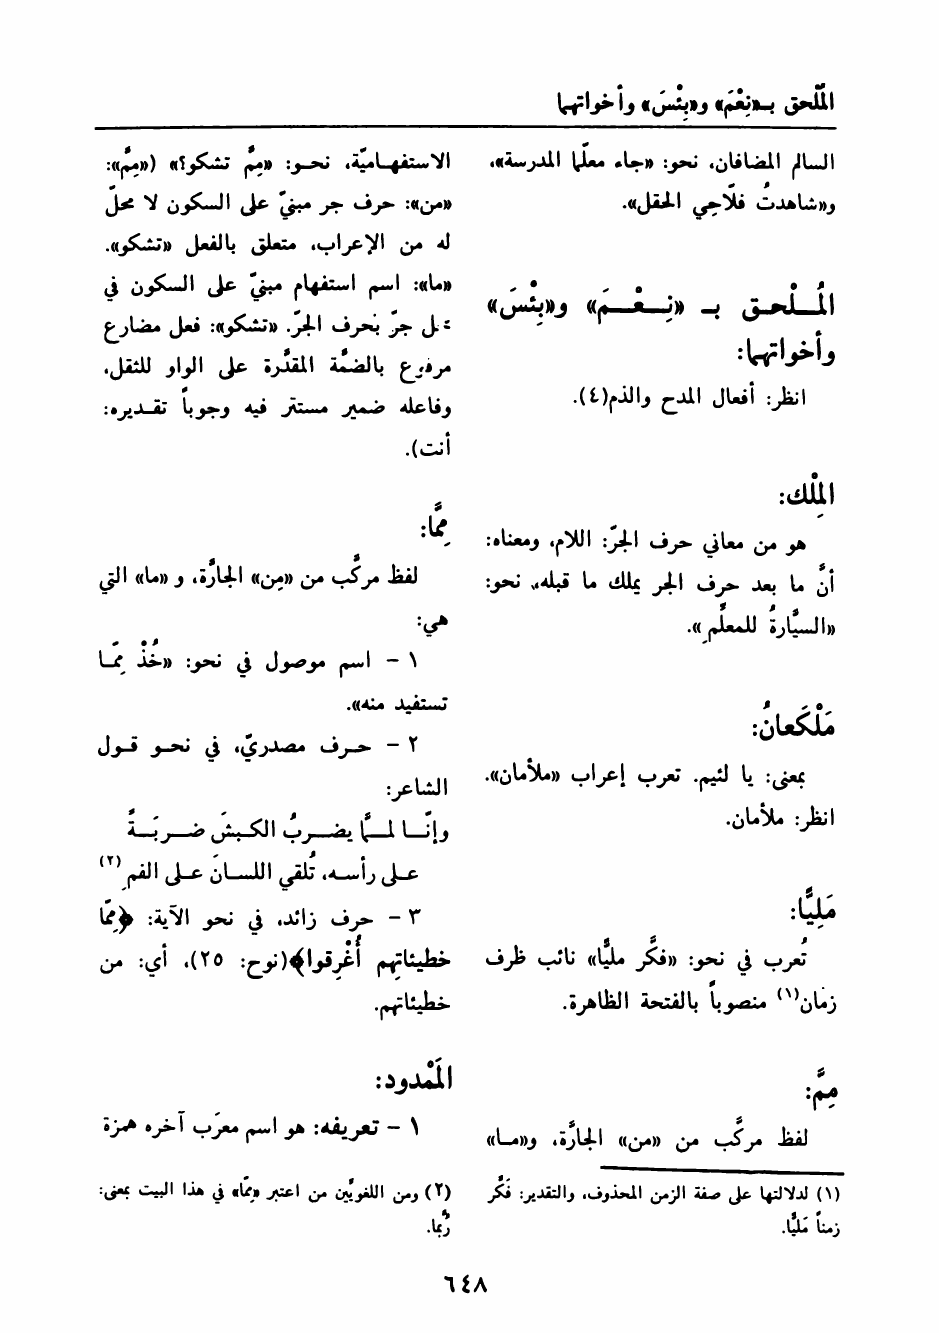 المُلْحق بـ«نِعْمَ» و«بِئْسَ» وأخواتهما
السالم المضافان، نحو: «جاء معلّما المدرسة»،
و«شاهدتُ فلّاحِي الحقل».
المُـلْحـق بـ «نِـعْـمَ» و«بِئْسَ»
وأخواتهما:
انظر: أفعال المدح والذم(٤).
المِلْك:
هو من معاني حرف الجرّ: اللام، ومعناه:
أنَّ ما بعد حرف الجر يملك ما قبله، نحو:
«السيَّارةُ للمعلِّمِ».
مَلْكَعانُ:
بمعنى: يا لئيم. تعرب إعراب «ملأمان».
انظر: ملأمان.
مَلِيًّا:
تُعرب في نحو: «فكَّر مليًّا» نائب ظرف
زمان(١) منصوباً بالفتحة الظاهرة.
مِمَّ:
لفظ مركَّب من «من» الجارَّة، و«مـا»
الاستفهـاميّة، نحـو: «مِمَّ تشكو؟» («مِمَّ»:
«من»: حرف جر مبنيّ على السكون لا محلّ
له من الإعراب، متعلق بالفعل «تشكو».
«ما»: اسم استفهام مبنيّ على السكون في
محل جرّ بحرف الجرّ. «تشكو»: فعل مضارع
مرفوع بالضمَّة المقدَّرة على الواو للثقل،
وفاعله ضمير مستتر فيه وجوباً تقـديره:
أنت).
مِمَّا:
لفظ مركَّب من «مِن» الجارَّة، و «ما» التي
هي:
١ - اسم موصول في نحو: «خُذْ مِمَّـا
تستفيد منه».
٢ - حـرف مصدريّ، في نحـو قـول
الشاعر:
وإنّـا لمـمَّا يضـربُ الكـبشَ ضـربَـةً
عـلى رأسـه، تُلقي اللسـانَ عـلى الفمِ(٢)
٣ - حرف زائد، في نحو الآية: ﴿مِمَّا
خطيئاتهِم أُغْرِقوا﴾(نوح: ٢٥)، أي: من
خطيئاتهم.
المَمْدود:
١ - تعريفه: هو اسم معرَب آخره همزة
(١) لدلالتها على صفة الزمن المحذوف، والتقدير: فَكَّر
زمناً مَليًّا.
(٢) ومن اللغويِّين من اعتبر «مِمَّا» في هذا البيت بمعنى:
رُبَّما.
٦٤٨